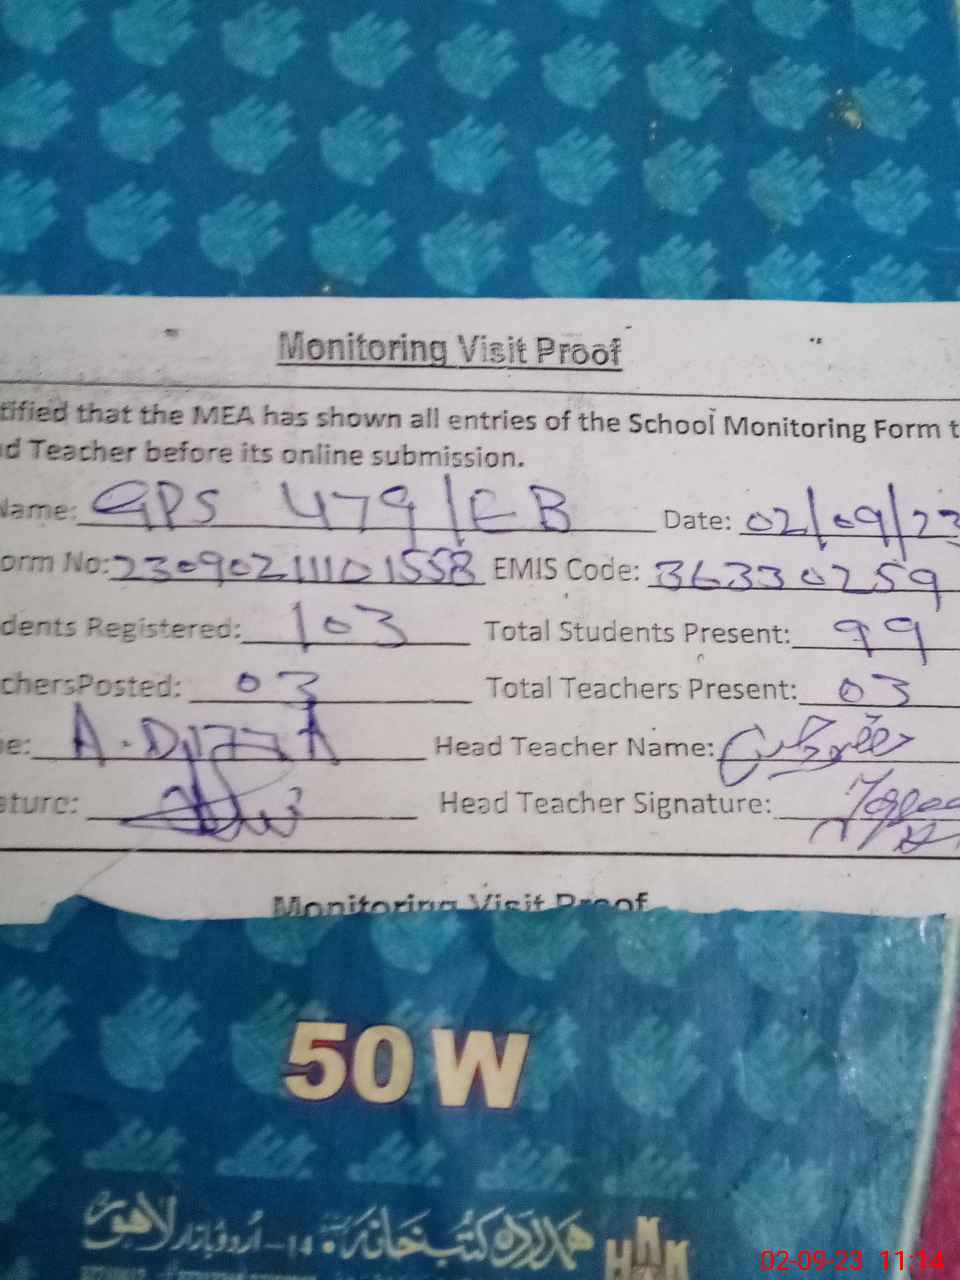 Monitoring Visit Proof
tified that the MEA has shown all entries of the School Monitoring Form t
d Teacher before its online submission.
Name: GPS 479/EB Date: 02/09/23
orm No: 230902111101558 EMIS Code: 36330259
dents Registered: 103 Total Students Present: 99
chersPosted: 03 Total Teachers Present: 03
e: Head Teacher Name:
ature: Head Teacher Signature:
Monitoring Visit Proof
50 W
ہمدرد کتب خانہ ۱۴-اُردو بازار لاہور
HKK
02-09-23 11:14